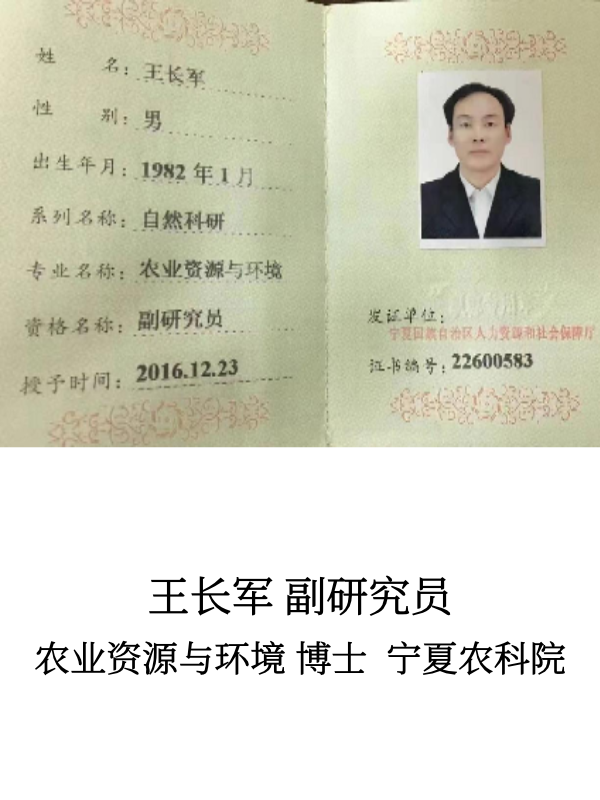 姓 名：王长军
性 别：男
出生年月：1982 年 1 月
系列名称：自然科研
专业名称：农业资源与环境
资格名称：副研究员
授予时间：2016.12.23
发证单位：
宁夏回族自治区人力资源和社会保障厅
证书编号：22600583
王长军 副研究员
农业资源与环境 博士 宁夏农科院